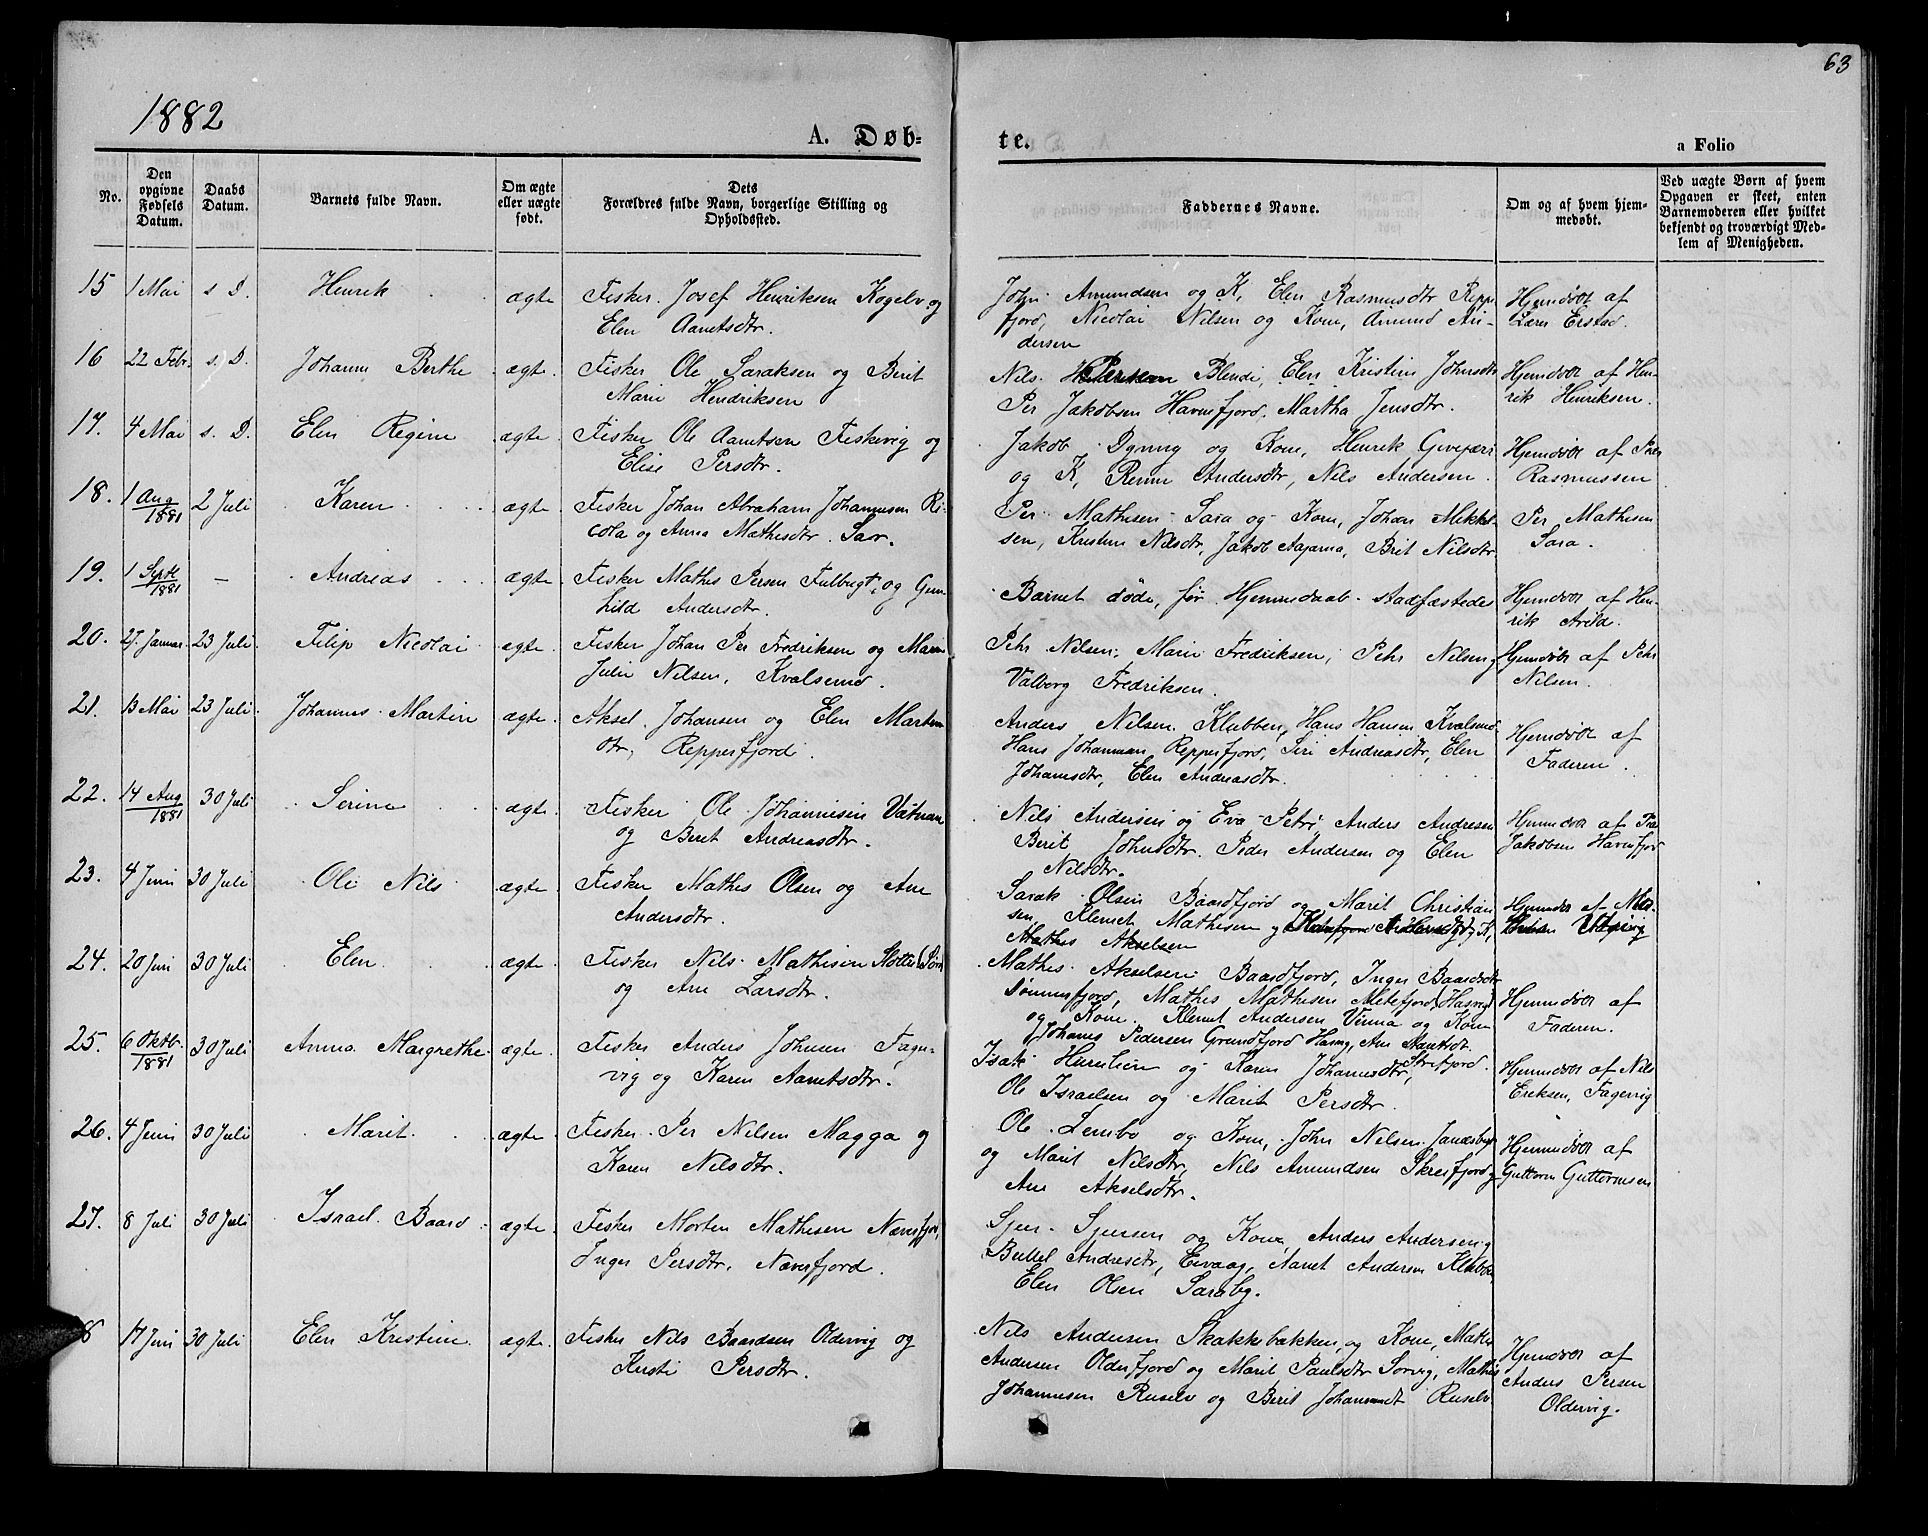 63
1882
A. Døb-
te.
a Folio
No.
Den
opgivne
Fødsels
Datum.
Daabs
Datum.
Barnets fulde Navn.
Om ægte
eller uægte
født.
Dets
Forældres fulde Navn, borgerlige Stilling og
Opholdssted.
Faddernes Navne.
Om og af hvem hjem-
medøbt.
Ved uægte Børn af hvem
Opgaven er skeet, enten
Barnemoderen eller hvilket
bekjendt og troværdigt Med-
lem af Menigheden.
15 1 Mai s. D. Henrik ægte Fisker Josef Henriksen Kogelv og
Elen Aamtsdtr.
John Amundsen og K, Elen Rasmusdtr Repp-
fjord, Nicolai Nilsen og Kone, Amund An-
dersen
Hjemdøbt af
Lærer Erstad.
16 22 Febr. s. D. Johanna Berthe ægte. Fisker Ole Saraksen og Berit
Marie Hendriksen
Nils Blendi, Elen Kristine Johnsdtr
Per Jakobsen Havnfjord, Martha Jensdtr.
Hjemdøbt af Hen-
rik Henriksen.
17. 4 Mai s. D. Elen Regine ægte. Fisker Ole Aamtsen Feskevig og
Elise Persdtr.
Jakob Dynng og Kone, Henrik
og K, Andersdtr, Nils Andersen.
Hjemdøbt af
Rasmussen
18. 1 Aug 1881 2 Juli Karen ægte. Fisker Johan Abraham Johannesen Ri-
cola og Anna Mathisdtr. Sar.
Per Mathesen Sara og Kone, Johan Mikkel-
sen, Kristine Nilsdtr, Jakob, Brit Nilsdtr
Per Mathesen
Sara.
19. 1 Septb 1881 — Andreas ægte. Fisker Mathis Persen Fulbugt, og Gun-
hild Andersdtr.
Barnet døde, før Hjemmedaab stadfæstedes
Hjemdøbt af Hen-
rik Arild.
20. 27 Januar. 23 Juli Filip Nicolai egte. Fisker Johan Per Fredriksen og Marie
Julie Nilsen, Kvalsund.
Pehr Nilsen, Marie Fredriksen, Pehr Nilsen og
Valborg Fredriksen.
Hjemdøbt af Pehr
Nilsen.
21. 13 Mai 23 Juli. Johannes Martin ægte. Aksel Johansen og Elen Martin
dtr, Repperfjord.
Anders Nilsen Klubben, Hans Hansen Kvalsund
Hans Johannsen, Repperfjord, Siri Andreasdtr, Elen
Johannesdtr, Elen Andreasdtr.
Hjemdøbt af
Faderen.
22. 14 Aug 1881 30 Juli Serine ægte. Fisker Ole Johannesen Vatnan
og Berit Andreasdtr.
Nils Andersen og Eva Petri, Anders Andresen
Berit Johnsdtr. Peder Andersen og Elen
Nilsdtr.
Hjemmdøbt af
Jakobsen Havnfjord
23. 4 Juni 30 Juli Ole Nils ægte. Fisker Mathes Olsen og Ane
Andersdtr.
Sarak Olsen Baardfjord og Marit Christian
sen, Klemet Mathisen og
Mathes Akselsen
24. 20 Juni 30 Juli Elen ægte. Fisker Nils Mathisen
og Ane Larsdtr.
Mathes Akselsen Baardfjord, Inger Baardsdtr
Sønnesfjord, Mathes Mathisen Metefjord, (Hasvig)
og Kone. Klemet Andersen Vinna og Kone
Johannes Pedersen Grundfjord Hasvig, Ane
Hjemmdøbt af
Faderen.
25. 6 Oktb. 1881 30 Juli Anna Margrethe ægte. Fisker Anders Johnsen, Fager-
vig og Karen Aamtsdtr.
Isak og Karen Johannesdtr,
Ole Israelsen og Marit Persdtr.
Hjemmdøbt af Nils
Eriksen, Fagervig
26. 4 Juni 30 Juli Marit ægte. Fisker Per Nilsen Magga og
Karen Nilsdtr.
Ole Lembo og Kone, John Nilsen
og Marit Nilsdtr, Nils Amundsen Skreifjord og
Ane Akselsdtr.
Hjemmdøbt af
Guttorm Guttormsen
27. 8 Juli 30 Juli Israel Baard ægte. Fisker Morten Mathesen Næverfjord,
Inger Persdtr. Næverfjord.
Sjur Sjursen og Kone, Anders Andersen og
Andresdtr, Aamt Andersen Klubben
Elen Olsen Saraby.
8 17 Juni 30 Juli Elen Kristine ægte. Fisker Nils Baardsen Oldervig og
Kirsti Persdtr.
Nils Andersen Skakkebakken, og Kone, Mathis
Andersen Olderfjord og Marit Paulsdtr Sørvig, Mathis
Johannesen Ruselv og Berit Johannesdt Ruselv
Hjemdøbt af
Anders Persen
Oldervig.